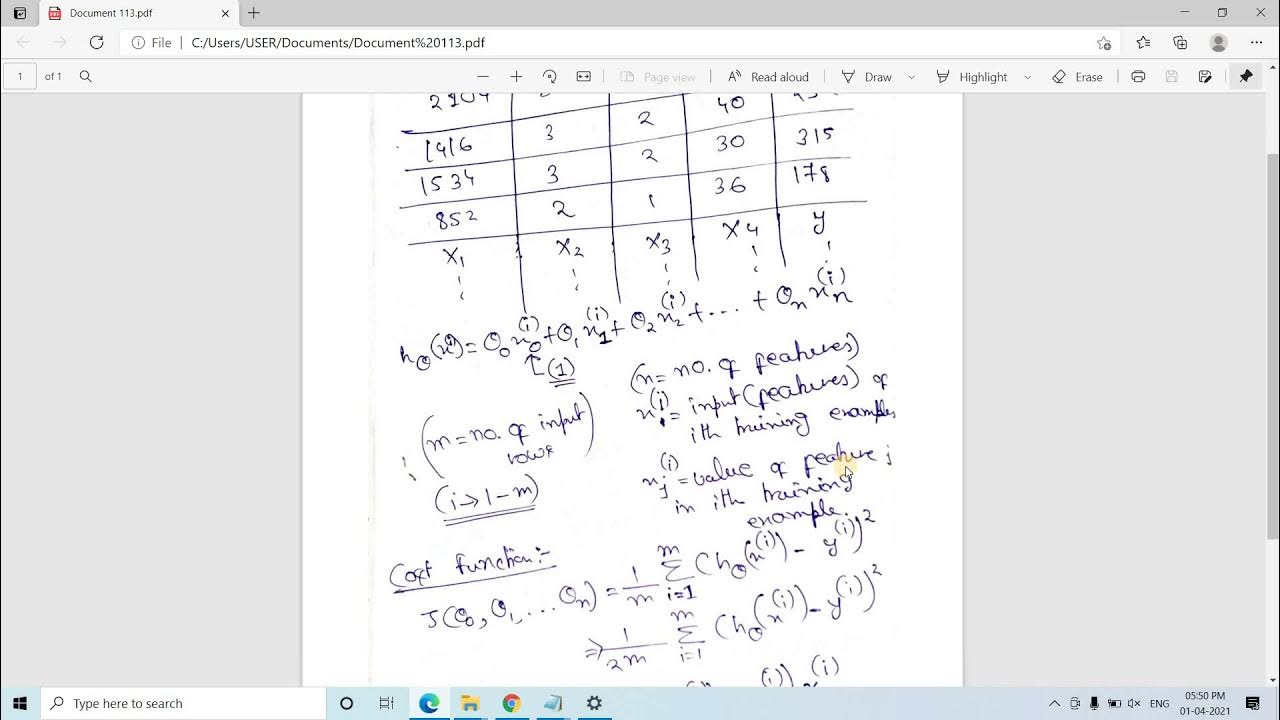 Document 113.pdf
File C:/Users/USER/Documents/Document%20113.pdf
1 of 1 Page view Read aloud Draw Highlight Erase
2104 40
1416 3 2 30 315
1534 3 2 36 178
852 2 1
x₁ x₂ x₃ x₄ y
h_θ(xⁱ) = θ₀x₀⁽ⁱ⁾ + θ₁x₁⁽ⁱ⁾ + θ₂x₂⁽ⁱ⁾ + ... + θₙxₙ⁽ⁱ⁾
(1)
(n = no. of features)
x⁽ⁱ⁾ = input (features) of
ith training examples
(m = no. of input
rows)
(i → 1 - m)
xⱼ⁽ⁱ⁾ = value of feature j
in ith training
example.
Cost function:-
J(θ₀, θ₁, ... θₙ) = 1/m Σᵢ₌₁ᵐ (h_θ(x⁽ⁱ⁾) - y⁽ⁱ⁾)²
⇒ 1/2m Σᵢ₌₁ᵐ (h_θ(x⁽ⁱ⁾) - y⁽ⁱ⁾)²
Type here to search
ENG
05:50 PM
01-04-2021